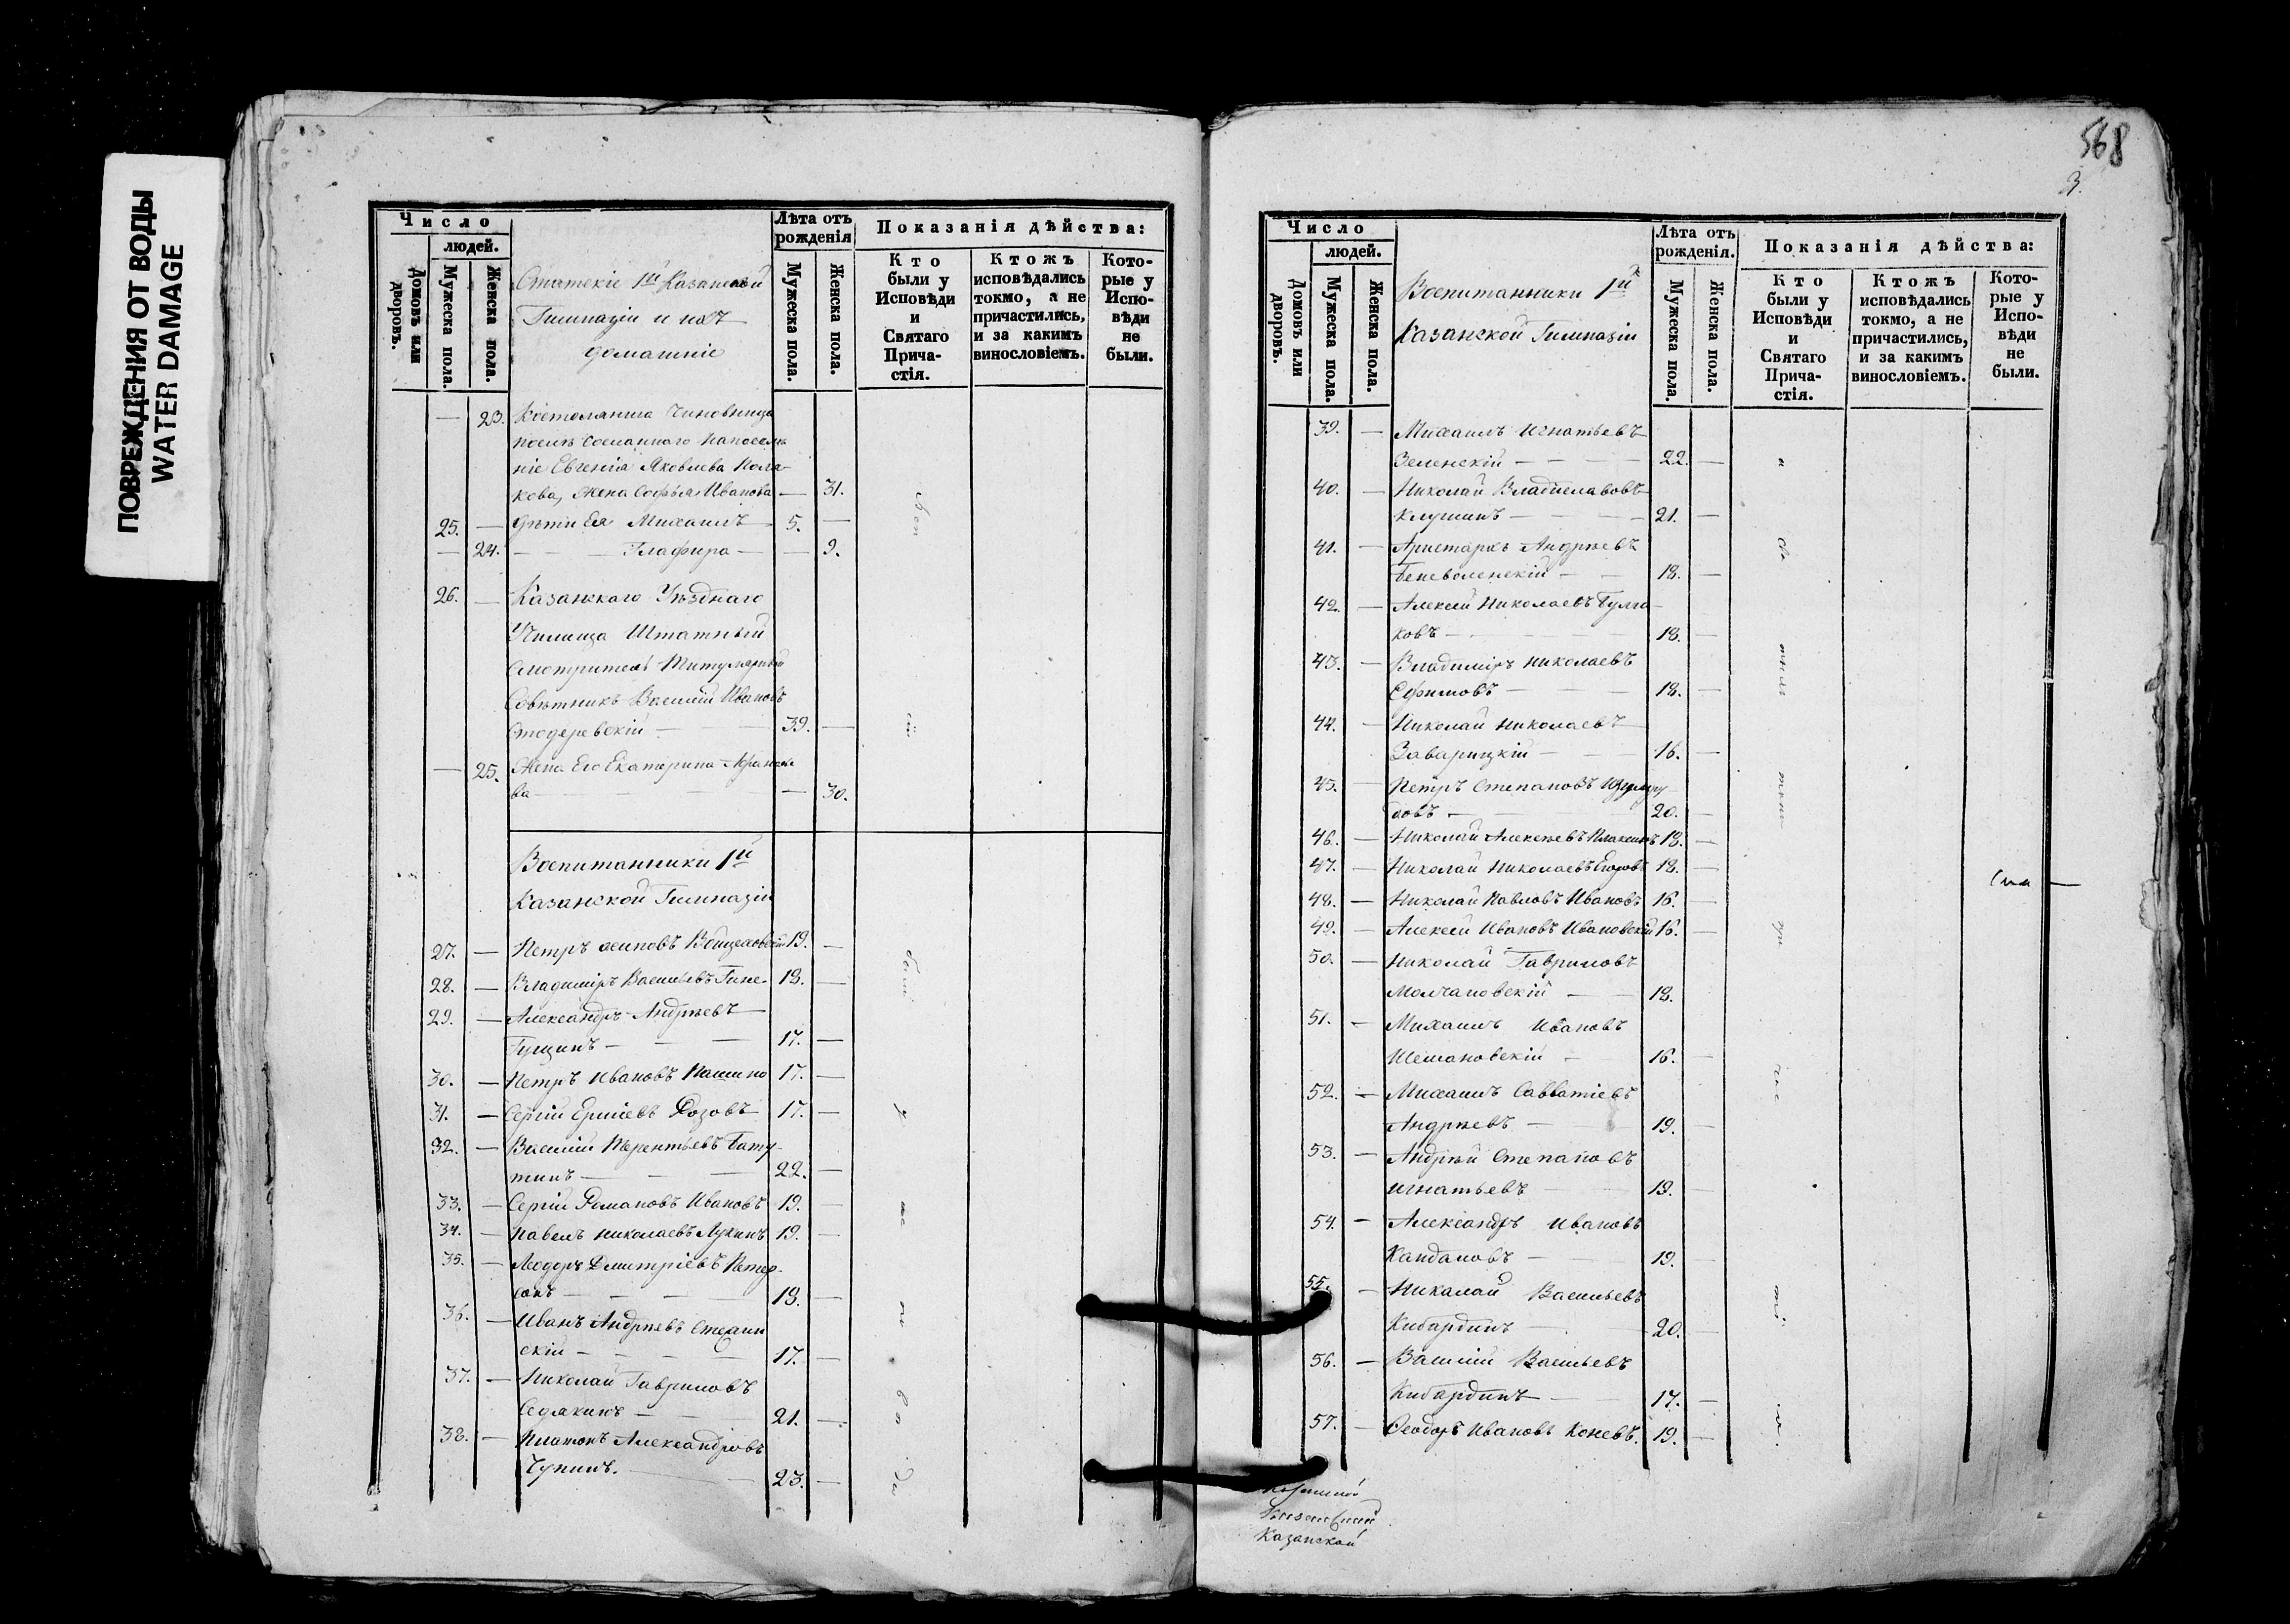 ПОВРЕЖДЕНИЯ ОТ ВОДЫ
WATER DAMAGE
Число
людей.
Домовъ или дворовъ.
Мужеска пола.
Женска пола.
Статскіе 1й Казанской
Гимназіи и ихъ
домашніе
Лѣта отъ рожденія
Мужеска пола.
Женска пола.
Показанія дѣйства:
Кто были у Исповѣди и Святаго Прича-стія.
Ктожъ исповѣдались токмо, а не причастились, и за какимъ винословіемъ.
Кото-рые у Испо-вѣди не были.
— 23. Чиновница
ніе Евгенія Яковлева Поля-
кова, Жена Софья Иванова — 31.
25. — Дѣти Ея Михаилъ 5. —
— 24. — Глафира — — 9.
26. — Казанскаго Уѣзднаго
Училища Штатный
Смотритель Титулярный
Совѣтникъ Василій Ивановъ
39. —
— 25. Жена Его Екатерина
ва — — 30.
Воспитанники 1й
Казанской Гимназіи
27. — Петръ Осиповъ 19. —
28. — Владиміръ Васильевъ 18. —
29. — Александръ Андреевъ
Гущинъ — 17. —
30. — Петръ Ивановъ Пашино 17. —
31. — Сергій Розовъ 17. —
32. — Василій Терентьевъ Бату-
тинъ — 22. —
33. — Сергій Романовъ Ивановъ 19. —
34. — Павелъ Николаевъ Лукинъ 19. —
35. — Дмитріевъ Петер-
сонъ — 18. —
36. — Иванъ Андреевъ
скій — 17. —
37. — Николай Гавриловъ
Седякинъ — 21. —
38. — Платонъ Александровъ
Чупинъ. 23. —
568
3.
Число
людей.
Домовъ или дворовъ.
Мужеска пола.
Женска пола.
Воспитанники 1й
Казанской Гимназіи
Лѣта отъ рожденія.
Мужеска пола.
Женска пола.
Показанія дѣйства:
Кто были у Исповѣди и Святаго Прича-стія.
Ктожъ исповѣдались токмо, а не причастились, и за какимъ винословіемъ.
Кото-рые у Испо-вѣди не были.
39. — Михаилъ Игнатьевъ
Зеленскій — 22. —
40. — Николай Владиславовъ
Клушинъ — 21. —
41. — Аристархъ Андреевъ
Беневоленскій — 18. —
42. — Алексей Николаевъ Булга-
ковъ — 18. —
43. — Владиміръ Николаевъ
Ефимовъ — 18. —
44. — Николай Николаевъ
Заварицкій — 16. —
45. — Петръ Степановъ Изумру-
довъ — 20. —
46. — Николай Алексеевъ 18. —
47. — Николай Николаевъ Егоровъ 18. —
48. — Николай Павловъ Ивановъ 16. —
49. — Алексей Ивановъ Ивановскій 16. —
50. — Николай Гавриловъ
Молчановскій — 18.
51. — Михаилъ Ивановъ
16. —
52. — Михаилъ Савватіевъ
Андреевъ — 19. —
53. — Андрей Степановъ
Игнатьевъ 19. —
54. — Александръ Ивановъ
Кандаловъ — 19. —
55. — Николай Васильевъ
Кибардинъ 20. —
56. — Василій Васильевъ
Кибардинъ — 17. —
57. — Феодоръ Ивановъ Коневъ. 19. —
Казанской